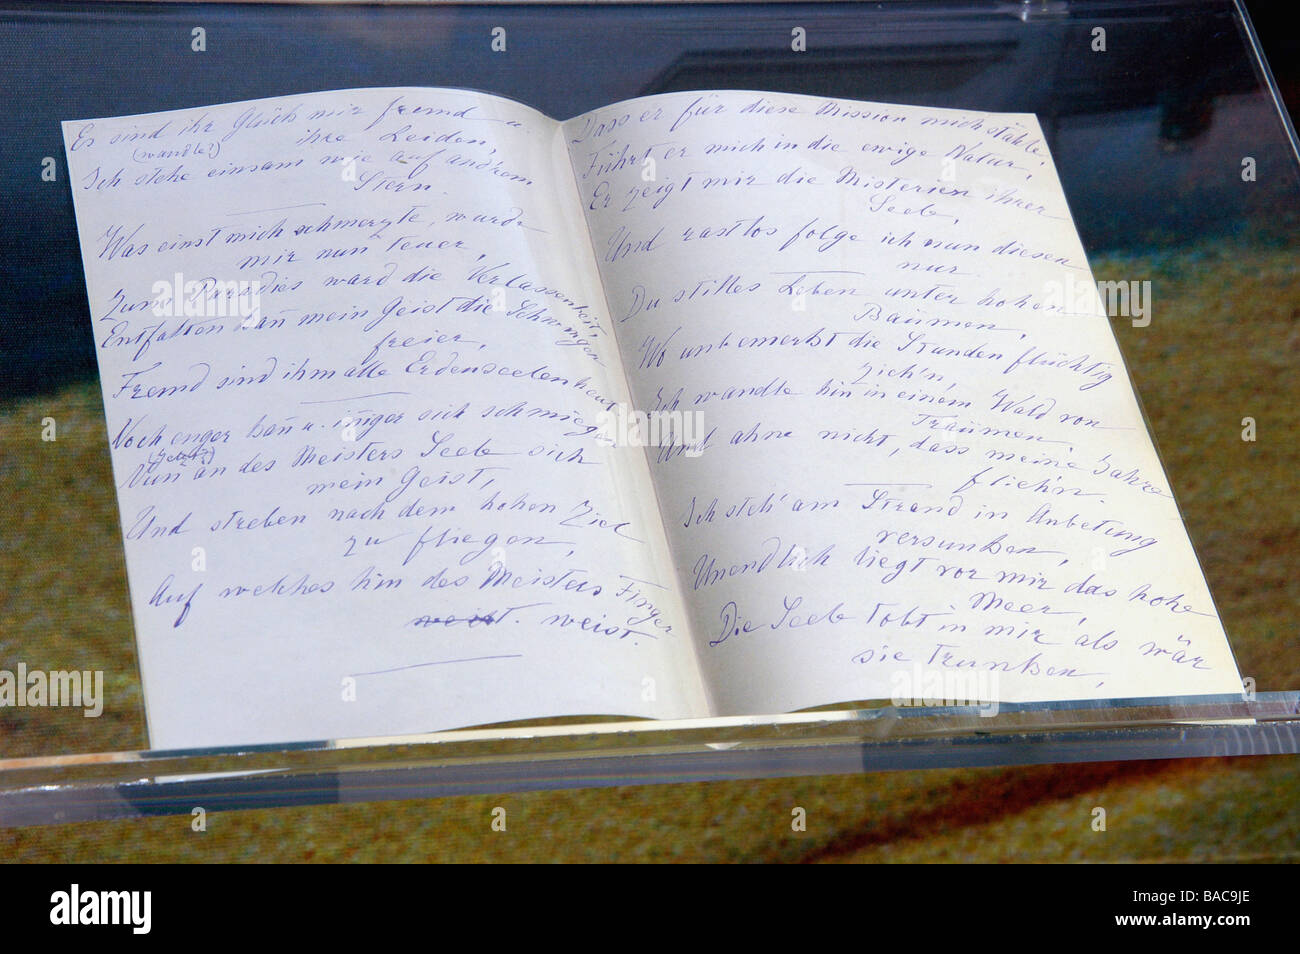 Es sind ihr Glück mir fremd u.
ihre Leiden,
(wandle?)
Ich stehe einsam wie auf and'rem
Stern.
Was einst mich schmerzte, wurde
mir nun teuer,
Zum Paradies ward die Verlassenheit,
Entfalten kan̄ mein Geist die Schwingen
freier,
Fremd sind ihm alle Erdenseelen heut
Noch enger kan̄ u. in̄iger sich schmiegen
(jetzt?)
Nun an des Meisters Seele sich
mein Geist,
Und streben nach dem hohen Ziel
zu fliegen,
Auf welches hin des Meisters Finger
weist. weist.
Dass er für diese Mission mich stähle,
Führt er mich in die ewige Natur,
Er zeigt mir die Misterien ihrer
Seele,
Und rastlos folge ich nun diesen
nur.
Du stilles Leben unter hohen
Bäumen,
Wo unbemerkt die Stunden flüchtig
zieh'n,
Ich wandle hin in einem Wald von
Träumen,
Und ahne nicht, dass meine Jahre
flieh'n.
Ich steh' am Strand in Anbetung
versunken,
Unendlich liegt vor mir das hohe
Meer,
Die Seele tobt in mir als wär
sie trunken,
alamy
alamy stock photo
Image ID: BAC9JE
www.alamy.com